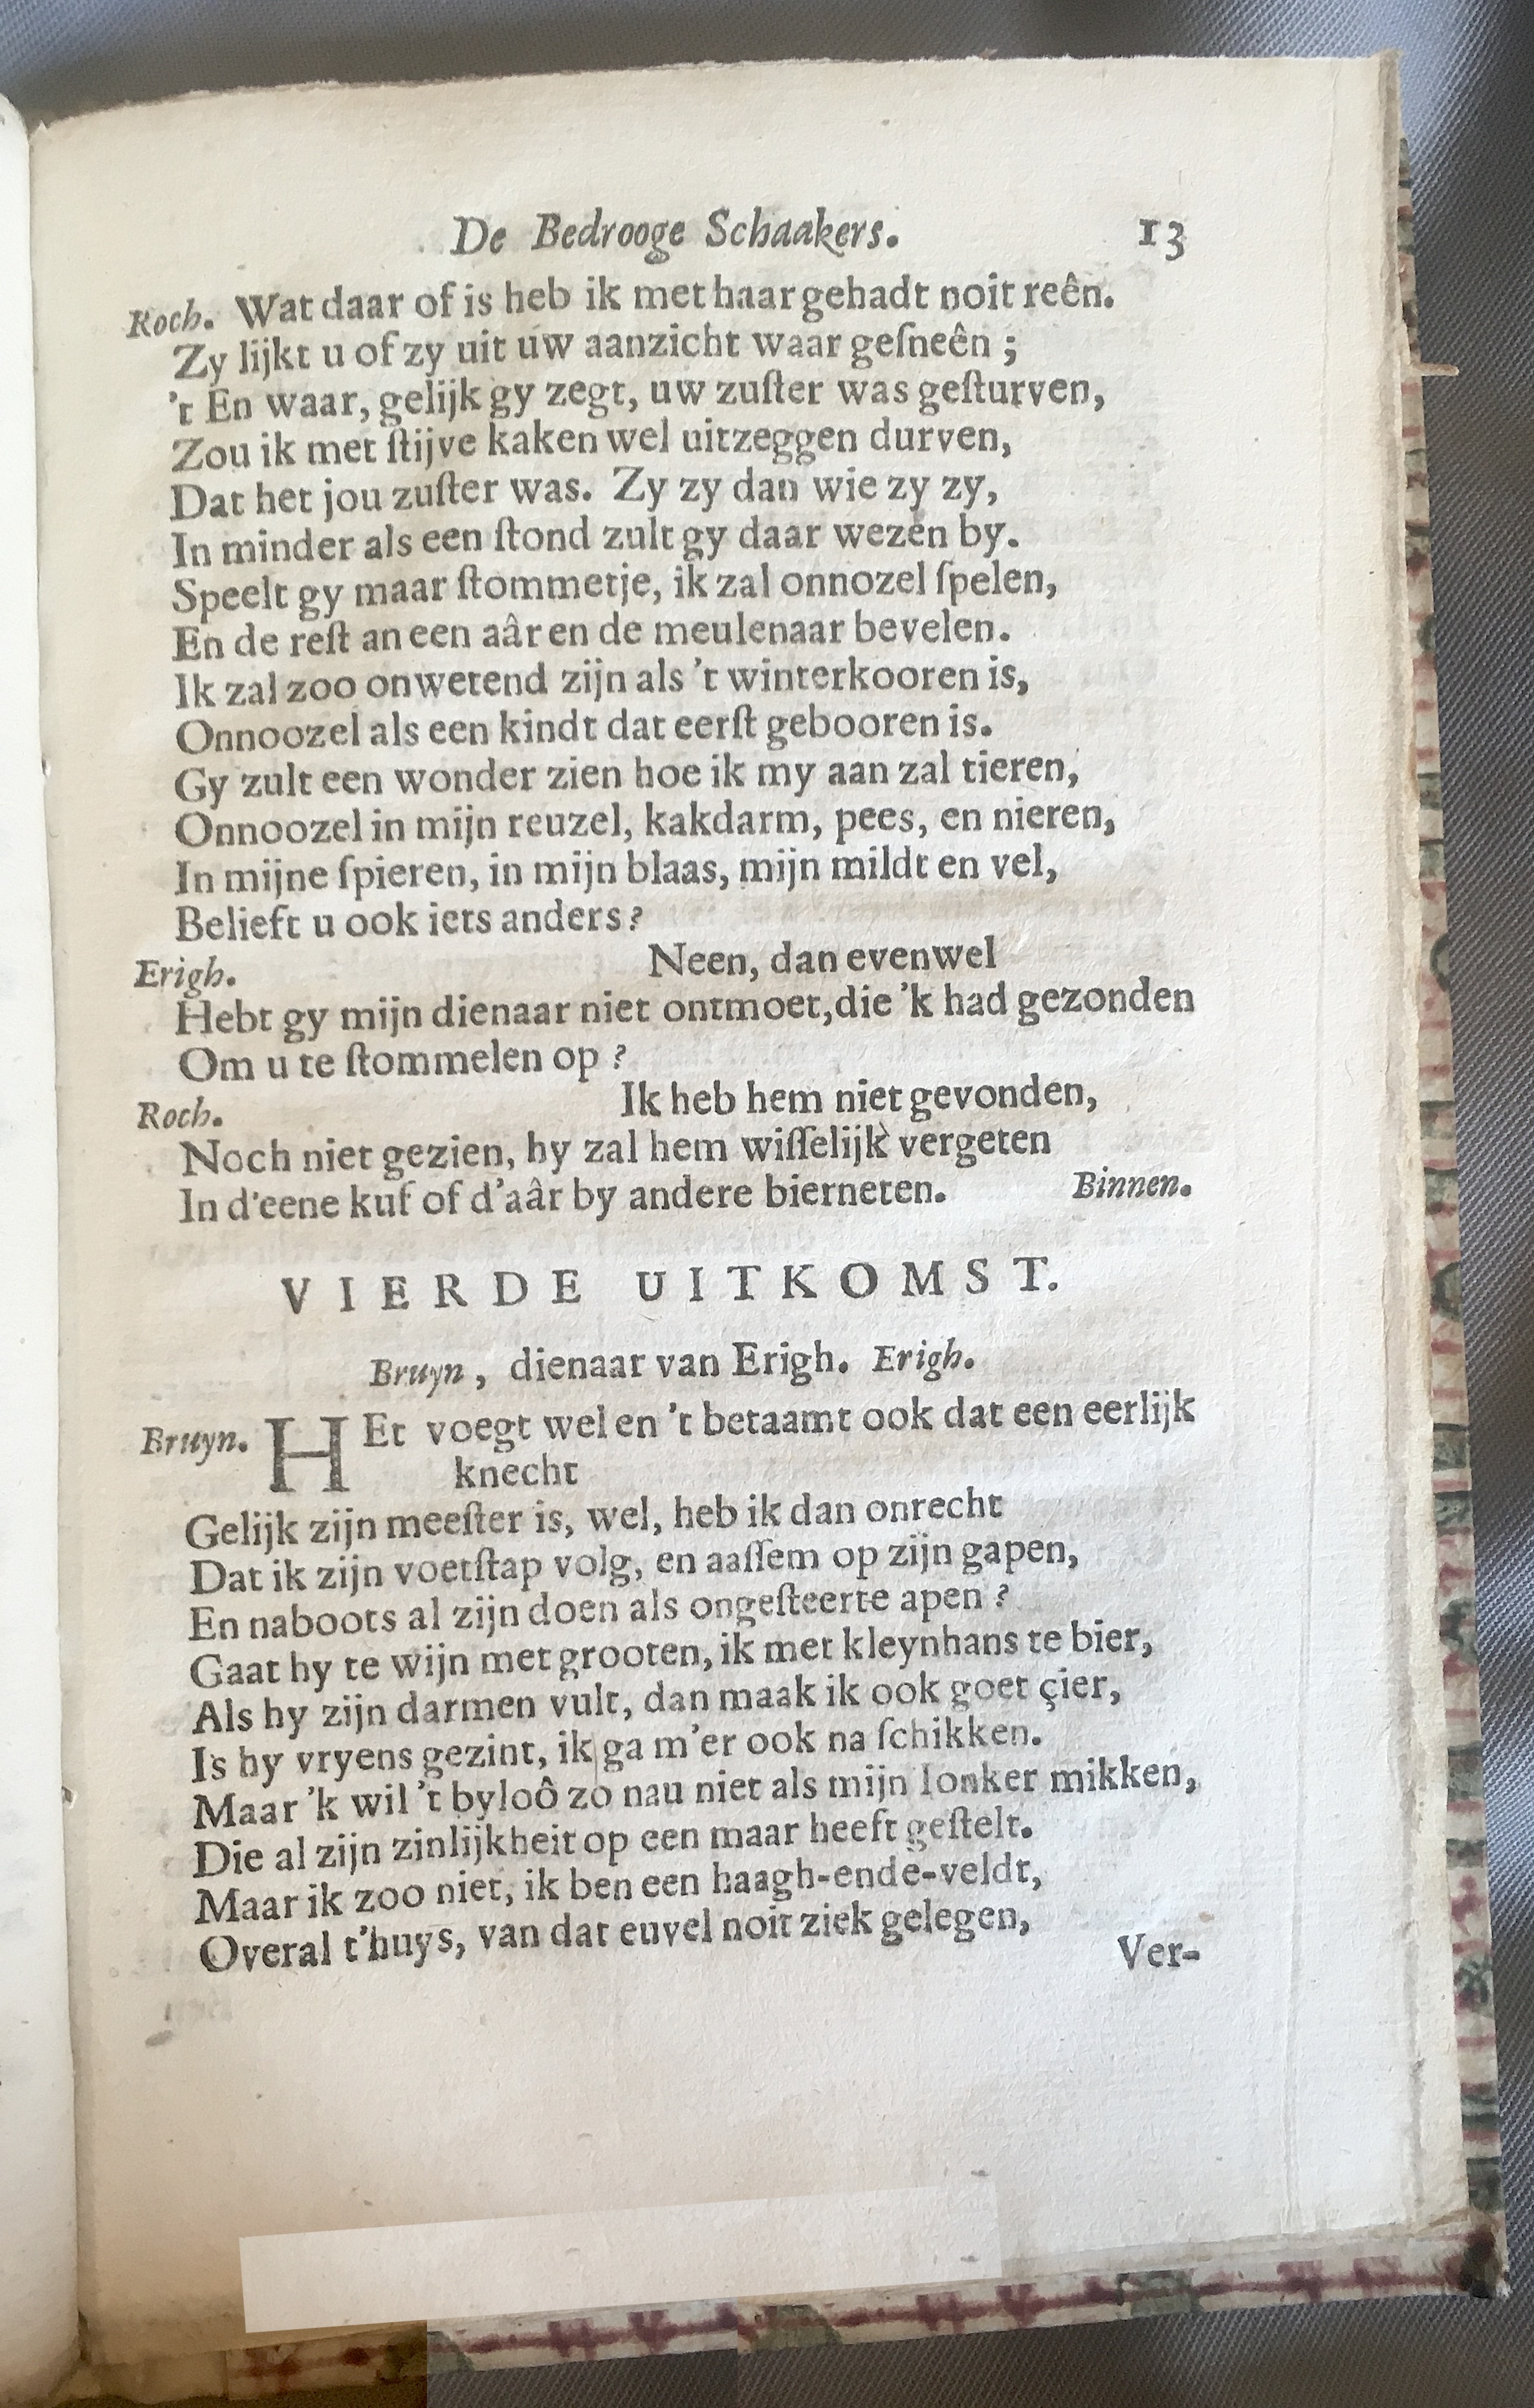 De Bedrooge Schaakers. 13
Roch. Wat daar of is heb ik met haar gehadt noit reên.
Zy lijkt u of zy uit uw aanzicht waar geſneên ;
't En waar, gelijk gy zegt, uw zuſter was geſturven,
Zou ik met ſtijve kaken wel uitzeggen durven,
Dat het jou zuſter was. Zy zy dan wie zy zy,
In minder als een ſtond zult gy daar wezen by.
Speelt gy maar ſtommetje, ik zal onnozel ſpelen,
En de reſt an een aâr en de meulenaar bevelen.
Ik zal zoo onwetend zijn als 't winterkooren is,
Onnoozel als een kindt dat eerſt gebooren is.
Gy zult een wonder zien hoe ik my aan zal tieren,
Onnoozel in mijn reuzel, kakdarm, pees, en nieren,
In mijne ſpieren, in mijn blaas, mijn mildt en vel,
Belieft u ook iets anders?
Erigh. Neen, dan evenwel
Hebt gy mijn dienaar niet ontmoet,die 'k had gezonden
Om u te ſtommelen op ?
Roch. Ik heb hem niet gevonden,
Noch niet gezien, hy zal hem wiſſelijk vergeten
In d'eene kuf of d'aâr by andere bierneten. Binnen.
VIERDE UITKOMST.
Bruyn, dienaar van Erigh. Erigh.
Bruyn. HEt voegt wel en 't betaamt ook dat een eerlijk
knecht
Gelijk zijn meeſter is, wel, heb ik dan onrecht
Dat ik zijn voetſtap volg, en aaſſem op zijn gapen,
En naboots al zijn doen als ongeſteerte apen ?
Gaat hy te wijn met grooten, ik met kleynhans te bier,
Als hy zijn darmen vult, dan maak ik ook goet çier,
Is hy vryens gezint, ik ga m'er ook na ſchikken.
Maar 'k wil 't byloô zo nau niet als mijn Ionker mikken,
Die al zijn zinlijkheit op een maar heeft geſtelt.
Maar ik zoo niet, ik ben een haagh-ende-veldt,
Overal t'huys, van dat euvel noit ziek gelegen,
Ver-